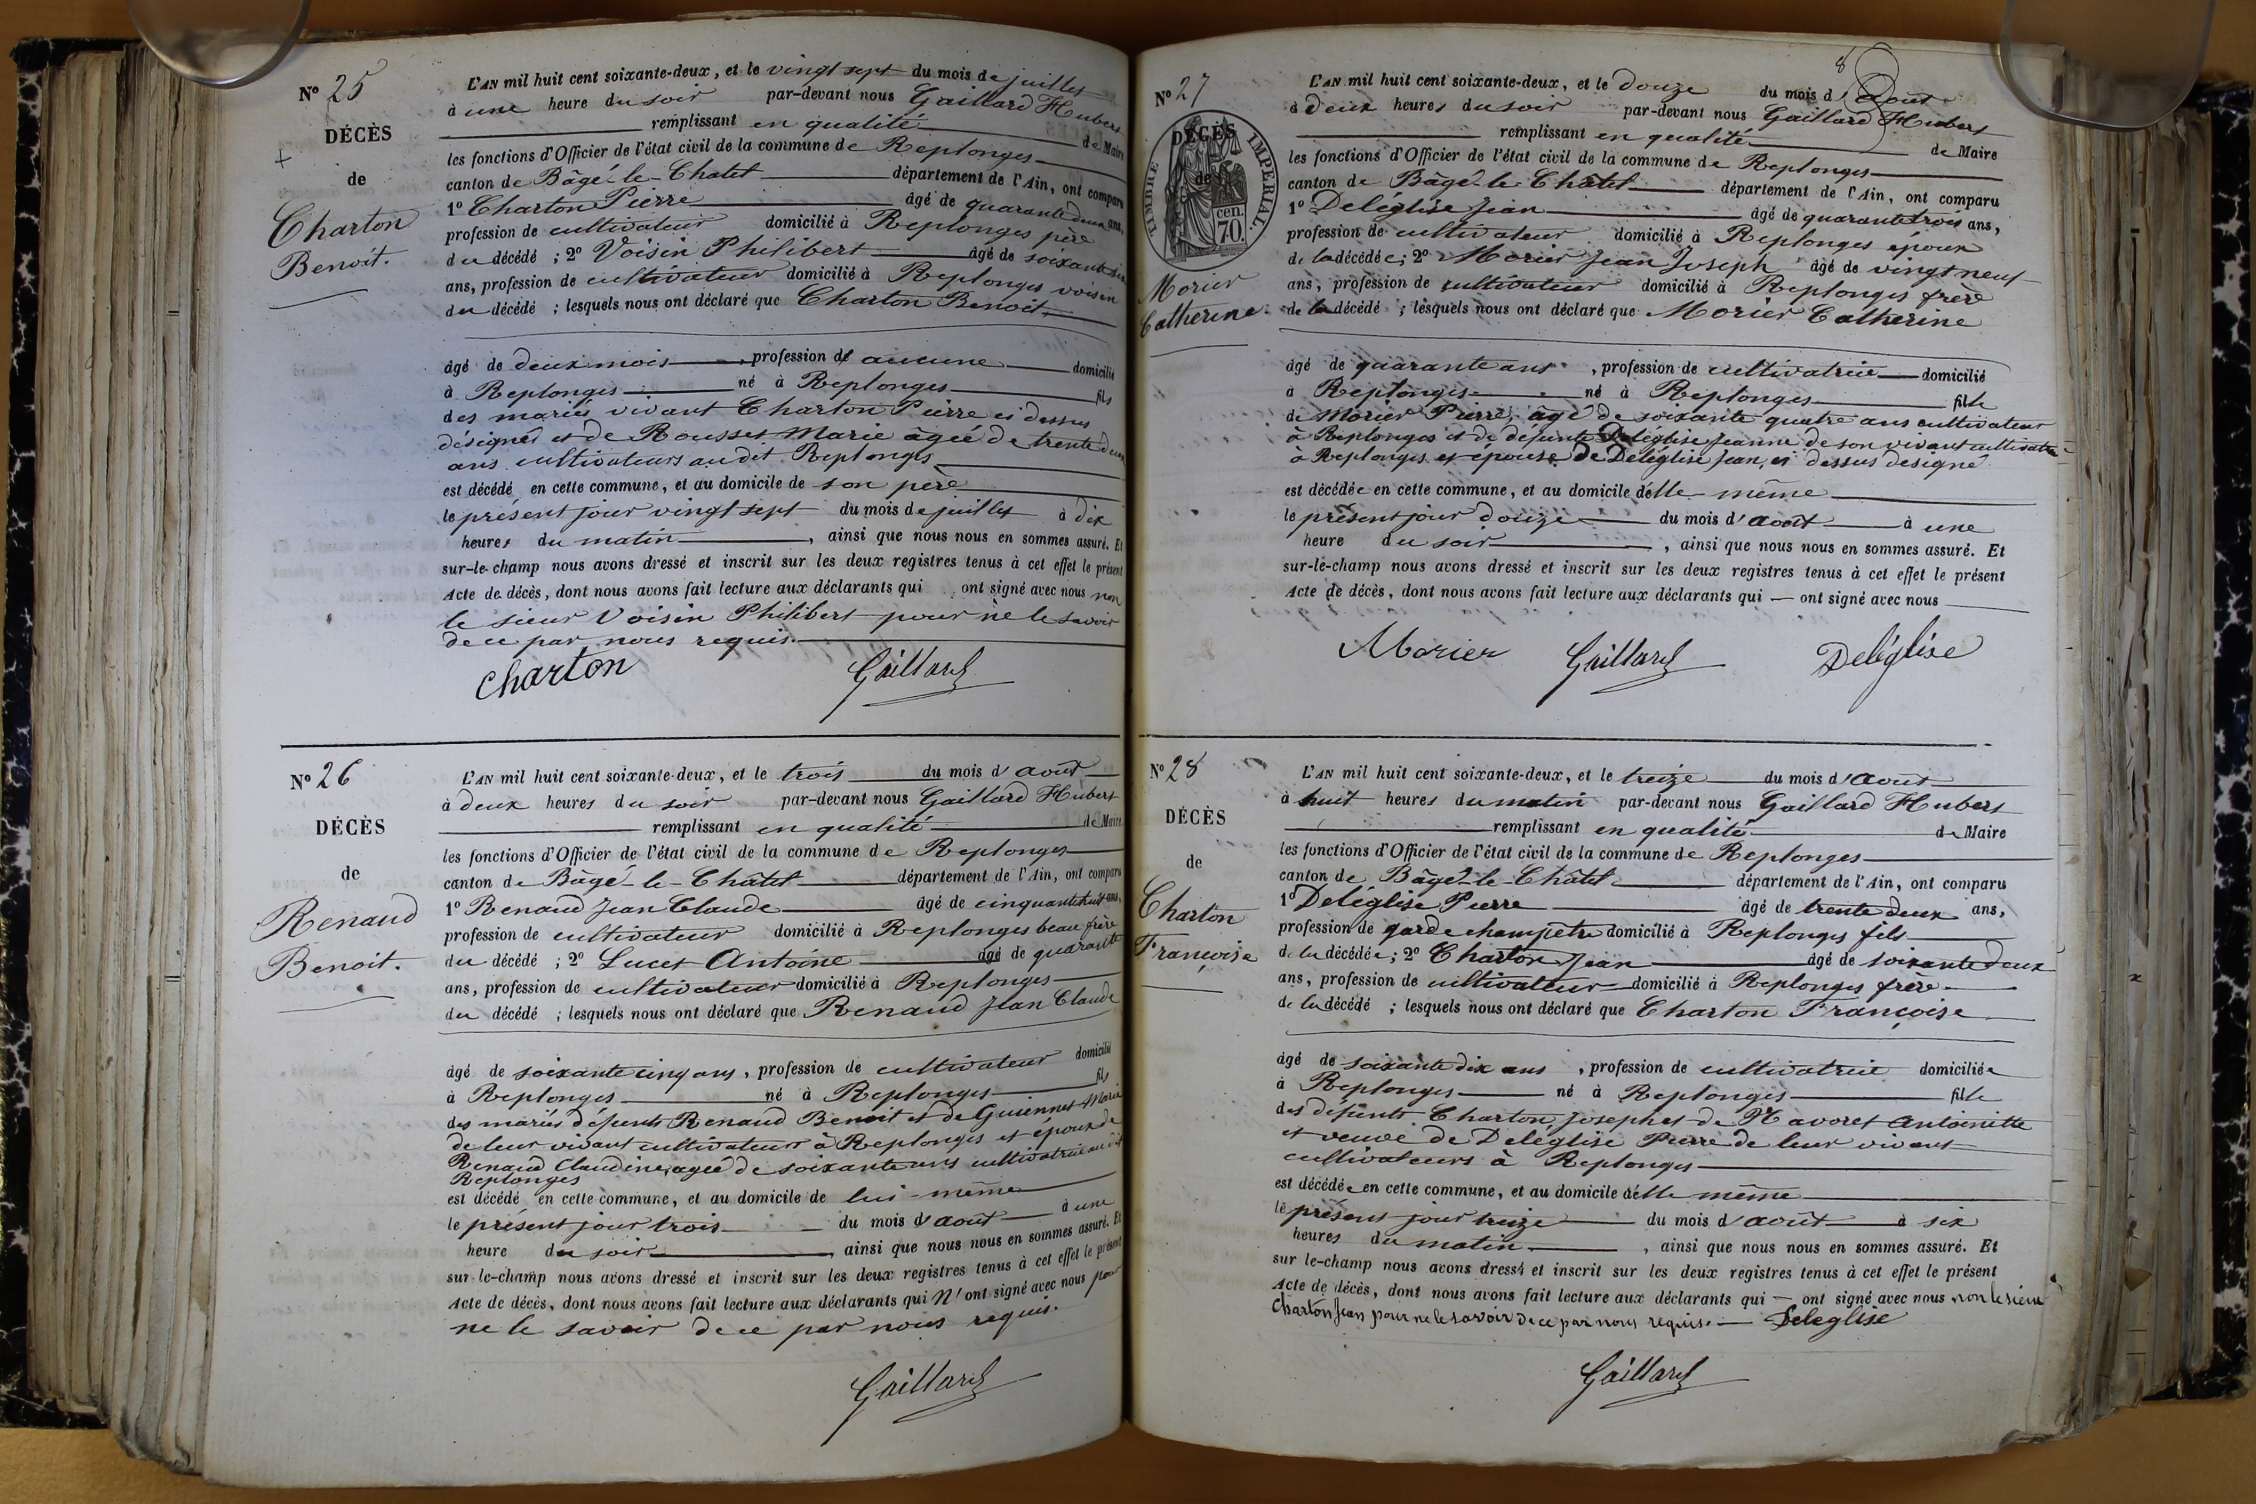 N° 25
DÉCÈS
de
Charton
Benoit.
L'AN mil huit cent soixante-deux, et le vingt sept du mois de juillet
à une heure du soir par-devant nous Gaillard Hubert
remplissant en qualité de Maire
les fonctions d'Officier de l'état civil de la commune de Replonges
canton de Bâgé-le-Chatel département de l'Ain, ont comparu
1° Charton Pierre âgé de quarante deux ans,
profession de cultivateur domicilié à Replonges père
du décédé ; 2° Voisin Philibert âgé de soixante six
ans, profession de cultivateur domicilié à Replonges voisin
du décédé ; lesquels nous ont déclaré que Charton Benoit
âgé de deux mois, profession de aucune domicilié
à Replonges né à Replonges fils
des mariés vivant Charton Pierre ci dessus
désigné et de Rousset Marie âgée de trente deux
ans cultivateurs au dit Replonges
est décédé en cette commune, et au domicile de son père
le présent jour vingt sept du mois de juillet à dix
heures du matin, ainsi que nous nous en sommes assuré. Et
sur-le-champ nous avons dressé et inscrit sur les deux registres tenus à cet effet le présent
Acte de décès, dont nous avons fait lecture aux déclarants qui ont signé avec nous non
le sieur Voisin Philibert pour ne le savoir
de ce par nous requis.
Charton Gaillard
N° 26
DÉCÈS
de
Renaud
Benoit.
L'AN mil huit cent soixante-deux, et le trois du mois d'août
à deux heures du soir par-devant nous Gaillard Hubert
remplissant en qualité de Maire
les fonctions d'Officier de l'état civil de la commune de Replonges
canton de Bâgé-le-Châtel département de l'Ain, ont comparu
1° Renaud Jean Claude âgé de cinquante huit ans,
profession de cultivateur domicilié à Replonges beau frère
du décédé ; 2° Lucet Antoine âgé de quarante
ans, profession de cultivateur domicilié à Replonges
du décédé ; lesquels nous ont déclaré que Renaud Jean Claude
âgé de soixante cinq ans, profession de cultivateur domicilié
à Replonges né à Replonges fils
des mariés défunts Renaud Benoit et de Guiennet Marie
de leur vivant cultivateurs à Replonges et époux de
Renaud Claudine, agée de soixante ans cultivatrice au dit
Replonges
est décédé en cette commune, et au domicile de lui-même
le présent jour trois du mois d'août à une
heure du soir, ainsi que nous nous en sommes assuré. Et
sur-le-champ nous avons dressé et inscrit sur les deux registres tenus à cet effet le présent
Acte de décès, dont nous avons fait lecture aux déclarants qui n'ont signé avec nous pour
ne le savoir de ce par nous requis.
Gaillard
8
N° 27
DÉCÈS
de
TIMBRE IMPÉRIAL
70 cen.
Morier
Catherine.
L'AN mil huit cent soixante-deux, et le douze du mois d'août
à deux heures du soir par-devant nous Gaillard Hubert
remplissant en qualité de Maire
les fonctions d'Officier de l'état civil de la commune de Replonges
canton de Bâgé-le-Châtel département de l'Ain, ont comparu
1° Deléglise Jean âgé de quarante trois ans,
profession de cultivateur domicilié à Replonges époux
de la décédée ; 2° Morier Jean Joseph âgé de vingt neuf
ans, profession de cultivateur domicilié à Replonges frère
de la décédé ; lesquels nous ont déclaré que Morier Catherine
âgé de quarante ans, profession de cultivatrice domicilié
à Replonges né à Replonges fille
de Morier Pierre, âgé de soixante quatre ans cultivateur
à Replonges et de défunte Deléglise Jeanne de son vivant cultivatrice
à Replonges et épouse de Deléglise Jean, ci dessus désigné
est décédée en cette commune, et au domicile d'elle-même
le présent jour douze du mois d'août à une
heure du soir, ainsi que nous nous en sommes assuré. Et
sur-le-champ nous avons dressé et inscrit sur les deux registres tenus à cet effet le présent
Acte de décès, dont nous avons fait lecture aux déclarants qui — ont signé avec nous
Morier Gaillard Deléglise
N° 28
DÉCÈS
de
Charton
Françoise
L'AN mil huit cent soixante-deux, et le treize du mois d'août
à huit heures du matin par-devant nous Gaillard Hubert
remplissant en qualité de Maire
les fonctions d'Officier de l'état civil de la commune de Replonges
canton de Bâgé-le-Châtel département de l'Ain, ont comparu
1° Deléglise Pierre âgé de trente deux ans,
profession de garde champetre domicilié à Replonges fils
de la décédée ; 2° Charton Jean âgé de soixante deux
ans, profession de cultivateur domicilié à Replonges frère
de la décédé ; lesquels nous ont déclaré que Charton Françoise
âgé de soixante dix ans, profession de cultivatrice domiciliée
à Replonges né à Replonges fille
des défunts Charton Joseph et de Navoret Antoinette
et veuve de Deléglise Pierre de leur vivant
cultivateurs à Replonges
est décédée en cette commune, et au domicile d'elle même
le présent jour treize du mois d'août à six
heures du matin, ainsi que nous nous en sommes assuré. Et
sur le-champ nous avons dressé et inscrit sur les deux registres tenus à cet effet le présent
Acte de décès, dont nous avons fait lecture aux déclarants qui — ont signé avec nous non le sieur
Charton Jean pour ne le savoir de ce par nous requis. — Deleglise
Gaillard